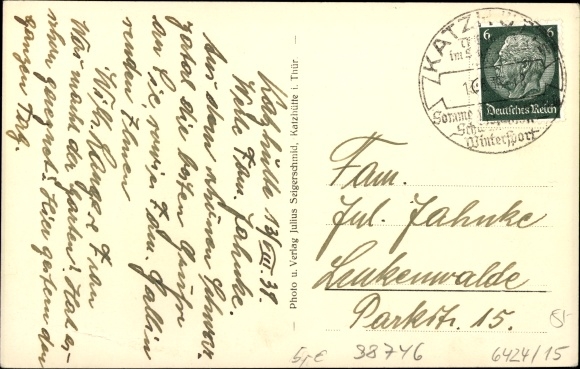 Katzhütte 13/VII. 39.
Wilh. Fam. Jahnke.
Aus dem schönen Schwarzatal die besten Grüße
an Sie sowie Fam. Gallin
senden Ihnen
Wilh. Runge u. Frau
Was macht der Garten? Hat es
schon geregnet? Hier gestern den
ganzen Tag.
Photo u. Verlag Julius Seigerschmid, Katzhütte i. Thür.
KATZHÜTTE
im
Sommer
Wintersport
6 6
Deutsches Reich
Fam.
Jul. Jahnke
Luckenwalde
Parkstr. 15.
38746
6424/15